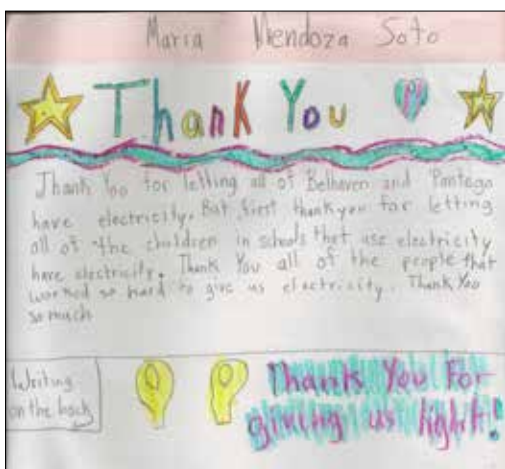 Maria Mendoza Soto
Thank You
Thank Yoo for letting all of Belhaven and Pantego
have electricity. But first thank you for letting
all of the children in schools that use electricity
have electricity. Thank You all of the people that
worked so hard to give us electricity. Thank Yoo
so much
Writing
on the back
Thank You For
giving us light!